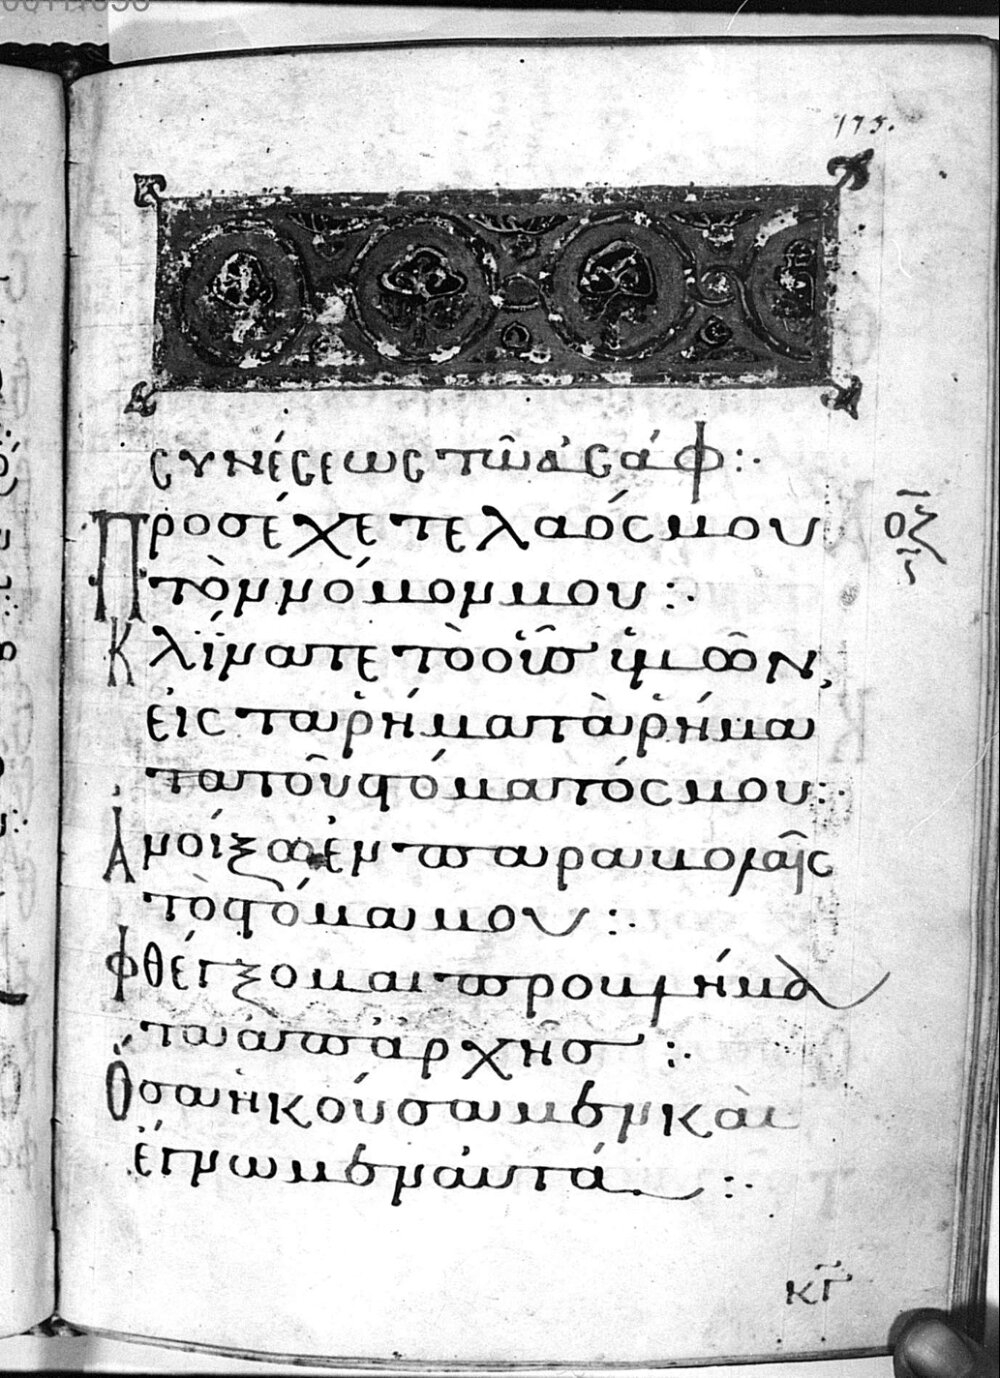 175.
συνέσεως τῶ ἀσάφ :·
Προσέχετε λαός μου
τὸν νόμον μου :·
Κλίνατε τὸ οὖς ὑμῶν,
εἰς τα ῥήματα ῥήμα
τα τοῦ στόματός μου :·
Ἀνοίξω ἐν παραβολαῖς
τὸ στόμα μου :·
Φθέγξομαι προβλήμα
τα ἀπ ἀρχῆς :·
Ὅσα ἠκούσαμεν καὶ
ἔγνωμεν αυτά :·
οζ
κγ